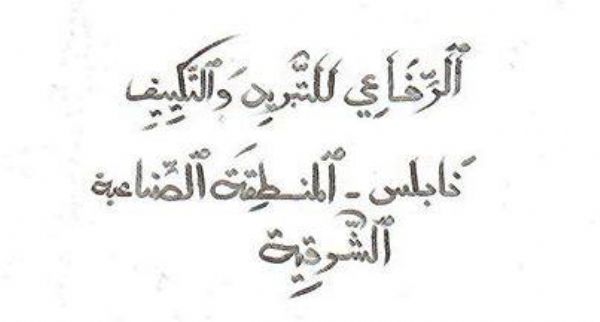 الرِّفَاعِي للتَّبريدِ وَالتَّكييِفِ
نَابلس - المنطِقَة الصِّنَاعية
الشَّرقِية